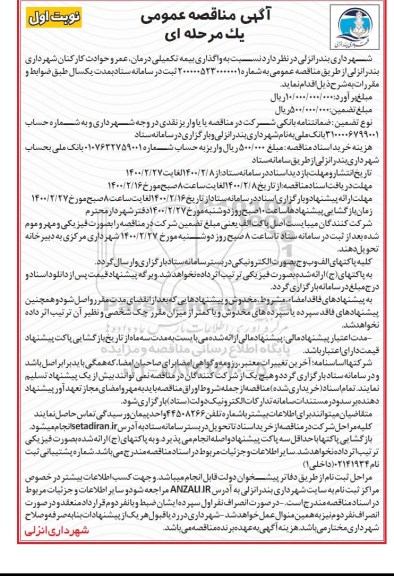 نوبت اول
آگهی مناقصه عمومی
یك مرحله ای
شهرداری بندرانزلی در نظر دارد نسبت به واگذاری بیمه تکمیلی درمان، عمر و حوادث کارکنان شهرداری
بندرانزلی از طریق مناقصه عمومی به شماره ۲۰۰۰۰۰۵۲۳۰۰۰۰۰۰۱ ثبت در سامانه ستاد بمدت یکسال طبق ضوابط و
مقررات به شرح ذیل اقدام نماید.
مبلغ برآورد: ۱۰/۰۰۰/۰۰۰/۰۰۰ ریال
مبلغ تضمین: ۵۰۰/۰۰۰/۰۰۰ ریال
نوع تضمین: ضمانتنامه بانکی شرکت در مناقصه یا واریز نقدی در وجه شهرداری و به شماره حساب
۳۱۰۰۰۰۶۷۹۹۰۰۱ بانک ملی به نام شهرداری بندرانزلی و بارگزاری در سامانه ستاد
هزینه خرید اسناد مناقصه: مبلغ ۵۰۰/۰۰۰ ریال واریز به حساب شماره ۰۱۰۷۶۳۲۷۵۹۰۰۱ بانک ملی بحساب
شهرداری بندرانزلی از طریق سامانه ستاد
تاریخ انتشار و مهلت بازدید اسناد در سامانه ستاد از ۱۴۰۰/۲/۸ لغایت ۱۴۰۰/۲/۲۷
مهلت دریافت اسناد مناقصه: از تاریخ ۱۴۰۰/۲/۸ لغایت ساعت ۸ صبح مورخ ۱۴۰۰/۲/۱۶
مهلت ارائه پیشنهاد و بارگزاری اسناد در سامانه ستاد از تاریخ ۱۴۰۰/۲/۱۶ لغایت ساعت ۸ صبح مورخ ۱۴۰۰/۲/۲۷
زمان بازگشایی پیشنهادها ساعت ۱۰ صبح روز دوشنبه مورخ ۱۴۰۰/۲/۲۷ دفتر شهردار محترم
شرکت کنندگان میبایست اصل پاکت الف یعنی مبلغ تضمین شرکت در مناقصه را بصورت فیزیکی و مهر و موم
شده بعد از ثبت در سامانه ستاد تا ساعت ۸ صبح روز دوشنبه مورخ ۱۴۰۰/۲/۲۷ شهرداری مرکزی به دبیرخانه
تحویل دهند.
کلیه پاکتهای الف و ب و ج بصورت الکترونیکی در بستر سامانه ستاد بارگزاری و ارسال گردد.
به پاکتهای (ج) ارائه شده بصورت فیزیکی ترتیب اثر داده نخواهد شد و برگه پیشنهاد قیمت پس از دانلود اسناد و
درج مبلغ در سامانه بارگزاری گردد.
به پیشنهادهای فاقد امضاء، مشروط، مخدوش و پیشنهادهایی که بعد از انقضای مدت مقرر واصل شود و همچنین
پیشنهادهای فاقد سپرده یا سپرده های مخدوش و یا کمتر از میزان مقرر چک شخصی و نظیر آن ترتیب اثر داده
نخواهد شد.
-مدت اعتبار پیشنهاد مالی: پیشنهاد مالی ارائه شده می بایست به مدت سه ماه از تاریخ بازگشایی پاکت پیشنهاد
قیمت دارای اعتبار باشد.
شرکتها اساسنامه؛ آخرین تغییرات معتبر، رزومه و گواهی امضا برای صاحبان امضا که همگی باید برابر اصل باشد
و در سامانه ستاد بارگزاری گردد و هیچ یک از شرکت کنندگان در مناقصه نمی توانند بیش از یک پیشنهاد تسلیم
نمایند. تمام اسناد (خریداری شده) مناقصه از جمله شروط اوراق مناقصه باید به مهر و امضای مجاز تعهدآور پیشنهاد
دهنده برسد و در مستندات سامانه تدارکات الکترونیک دولت (ستاد) بارگزاری شود.
متقاضیان میتوانند برای اطلاعات بیشتر با شماره تلفن ۴۴۵۰۸۲۶۶ واحد پیمان و رسیدگی تماس حاصل نمایند
کلیه مراحل شرکت در مناقصه از خرید اسناد تا تحویل در بستر سامانه ستاد به آدرس setadiran.ir انجام میشود.
بازگشایی پاکتها با حداقل سه پاکت پیشنهاد واصله انجام می پذیرد. و به پاکتهای (ج) ارائه شده بصورت فیزیکی
ترتیب اثر داده نخواهد شد. سایر اطلاعات و جزئیات مربوط در اسناد مناقصه مندرج می باشد. شماره پشتیبانی ثبت
نام ۰۲۱۴۱۹۳۴ (داخلی ۱)
مراحل ثبت نام از طریق دفاتر پیشخوان دولت قابل انجام میباشد. و جهت کسب اطلاعات بیشتر در خصوص
مراکز ثبت نام به سایت شهرداری بندرانزلی به آدرس ANZALI.IR مراجعه شود و سایر اطلاعات و جزئیات مربوط
در اسناد مناقصه مندرج است. - در صورت انصراف نفر اول سپرده ایشان ضبط و با نفر دوم قرارداد منعقد و در صورت
انصراف نفر دوم نیز به همین منوال عمل خواهد شد - شهرداری در رد یا قبول هر یک از پیشنهادات بنا به صرفه و صلاح
شهرداری مختار می باشد. هزینه آگهی به عهده برنده مناقصه می باشد.
شهرداری انزلی